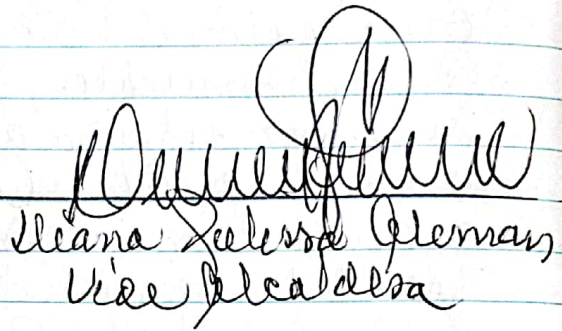 Iliana Julissa Aleman
Vice Alcaldesa